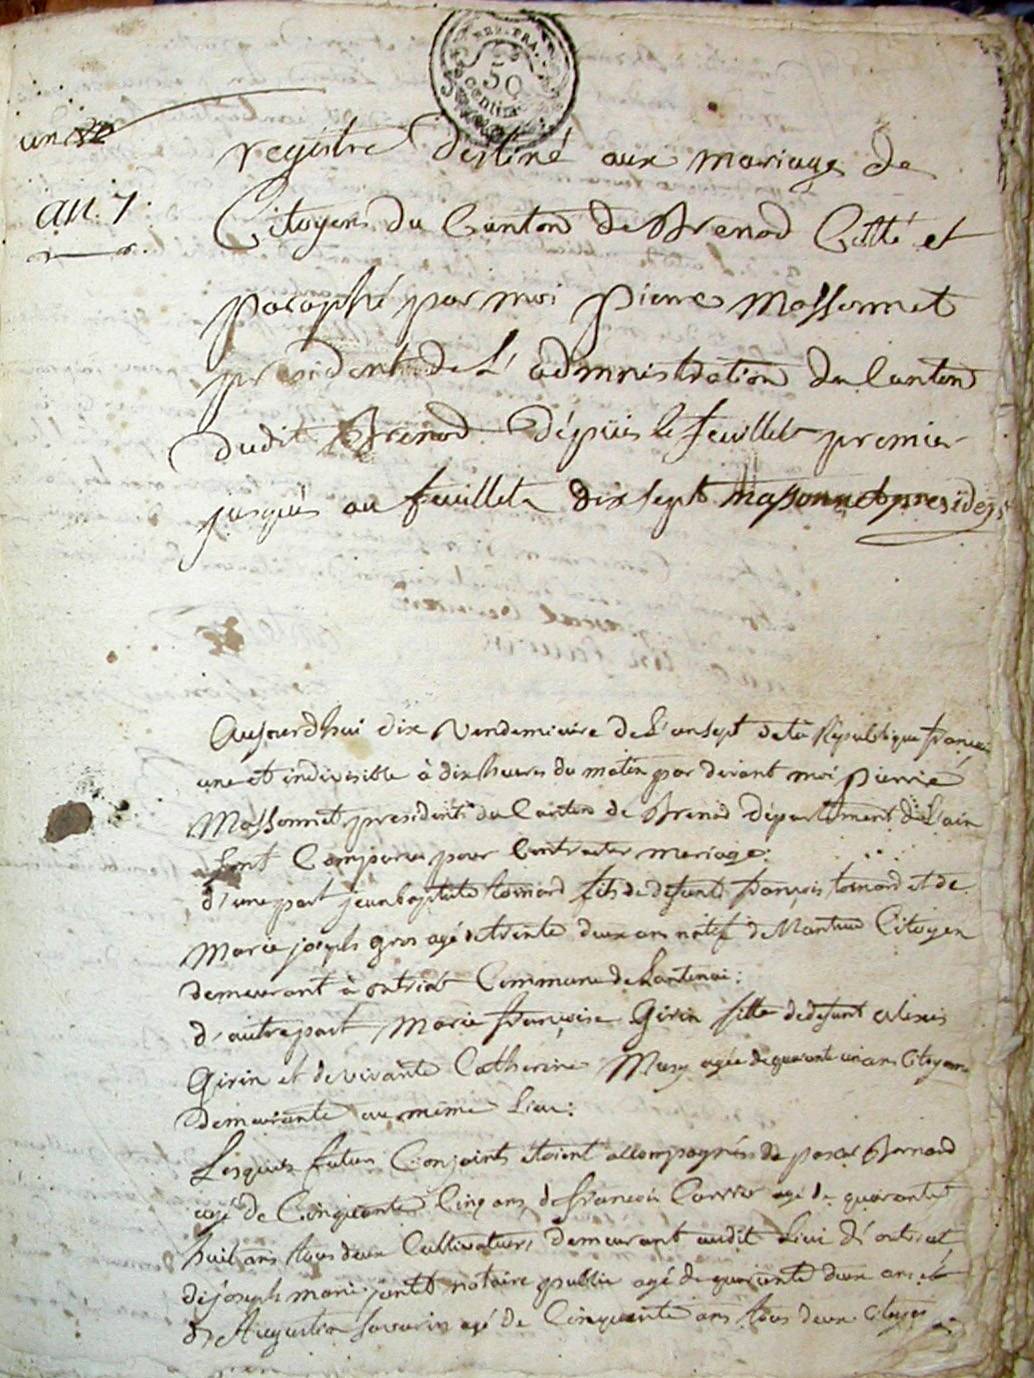 REP. FRA.
50
centimes
un
an 7.
registre destiné aux mariages de
Citoyens du Canton de Brenod Cotté et
paraphé par moi pierre Massonnet
president de L'admnistration du Canton
dudit Brenod dépuis le feuillet premier
jusques au feuillet dix sept Massonnet president
Aujourdhui dix Vendemiaire de L'an sept de la République francaise
une et indivisible à dix heures du matin par devant moi pierre
Massonnet president du Canton de Brenod département de L'ain
sont Comparus pour Contracter mariage:
d'une part jean baptiste tornard fils de defunt françois tornard et de
Marie joseph gros agé de trente deux ans natif de Nantua Citoyen
demeurant à ostriat Commune de Lantenai:
d'autre part Marie françoise Girin fille de defunt alexis
Girin et de vivante Catherine Musy agée de quarante un ans Citoyenne
demeurante au même Lieu:
Lesquels futurs Conjoints étoient accompagnés de Bernard
agé de Cinquante Cinq ans, de francois Carrier agé de quarante
huit ans tous deux Cultivateurs demeurant audit Lieu d'ostriat
de joseph marie jantet notaire public agé de quarante deux ans et
d'Augustin savarin agé de Cinquante ans tous deux Citoyens